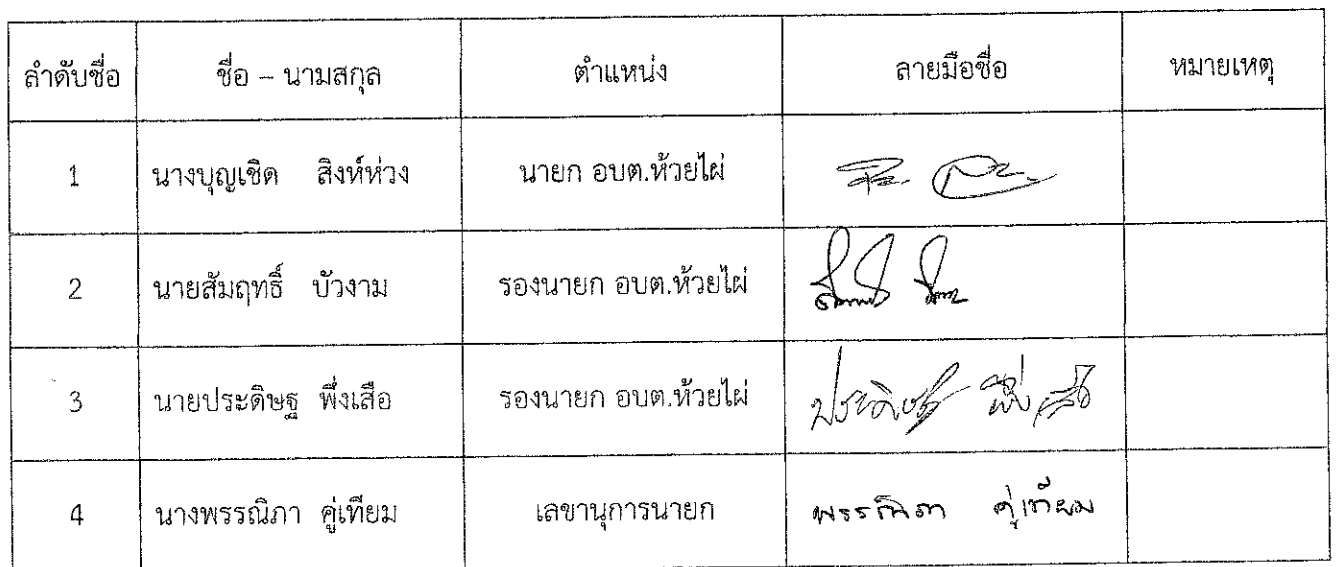 ลำดับชื่อ ชื่อ – นามสกุล ตำแหน่ง ลายมือชื่อ หมายเหตุ
1 นางบุญเชิด สิงห์ห่วง นายก อบต.ห้วยไผ่
2 นายสัมฤทธิ์ บัวงาม รองนายก อบต.ห้วยไผ่
3 นายประดิษฐ พึ่งเสือ รองนายก อบต.ห้วยไผ่ ประดิษฐ พึ่งเสือ
4 นางพรรณิภา คู่เทียม เลขานุการนายก พรรณิภา คู่เทียม